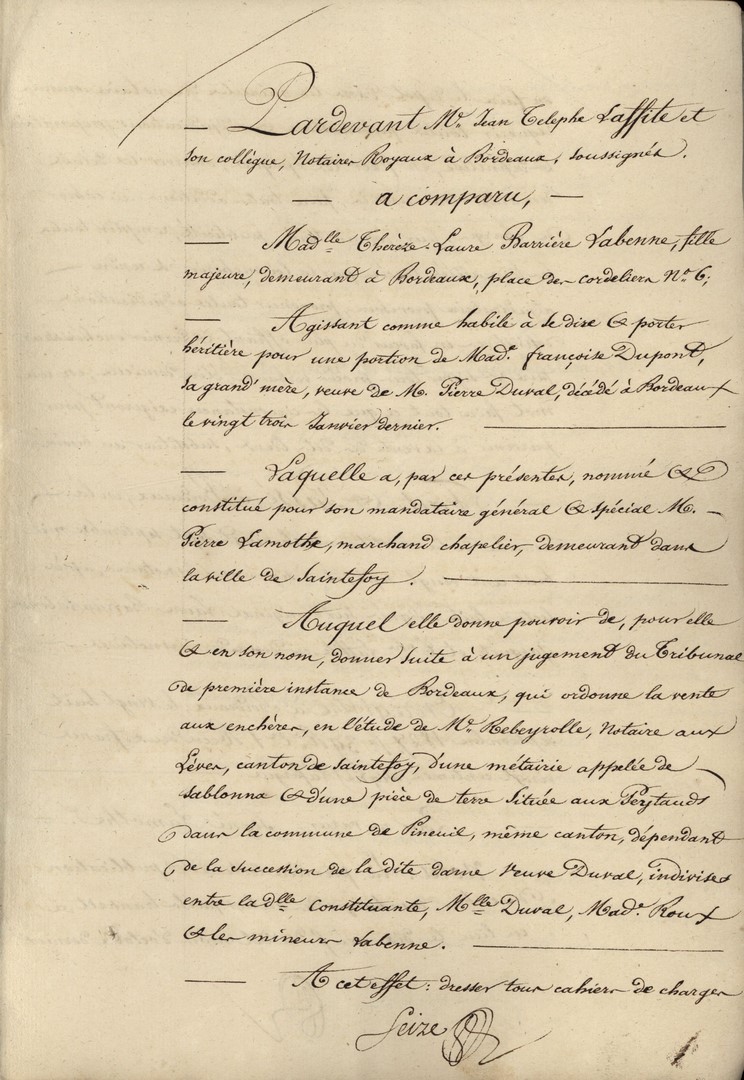 — Pardevant Me. Jean Telephe Laffite et
son collégue, Notaires Royaux à Bordeaux, soussignés.
— a comparu, —
— Madlle Thérèze-Laure Barrière Labenne, fille
majeure, demeurant à Bordeaux, place des cordeliers No. 6;
— Agissant comme habile à se dire & porter
héritière pour une portion de Made. françoise Dupont,
sa grand'mère, veuve de M. Pierre Duval, décédé à Bordeaux
le vingt trois Janvier dernier. —
— Laquelle a, par ces présentes, nommé &
constitué pour son mandataire général & spécial M. —
Pierre Lamothe, marchand chapelier, demeurant dans
la ville de Saintefoy. —
— Auquel elle donne pouvoir de, pour elle
& en son nom, donner suite à un jugement du Tribunal
de première instance de Bordeaux, qui ordonne la vente
aux enchères, en l'étude de Me. Rebeyrolle, Notaire aux
Lèves, canton de saintefoy, d'une métairie appelée de —
sablonna & d'une pièce de terre située aux Peytauds
dans la commune de Pineuil, même canton, dépendant
de la succession de la dite dame veuve Duval, indivises
entre la dlle constituante, Mlle Duval, Made. Roux
& les mineurs Labenne. —
— A cet effet: dresser tous cahiers de charges
Seize